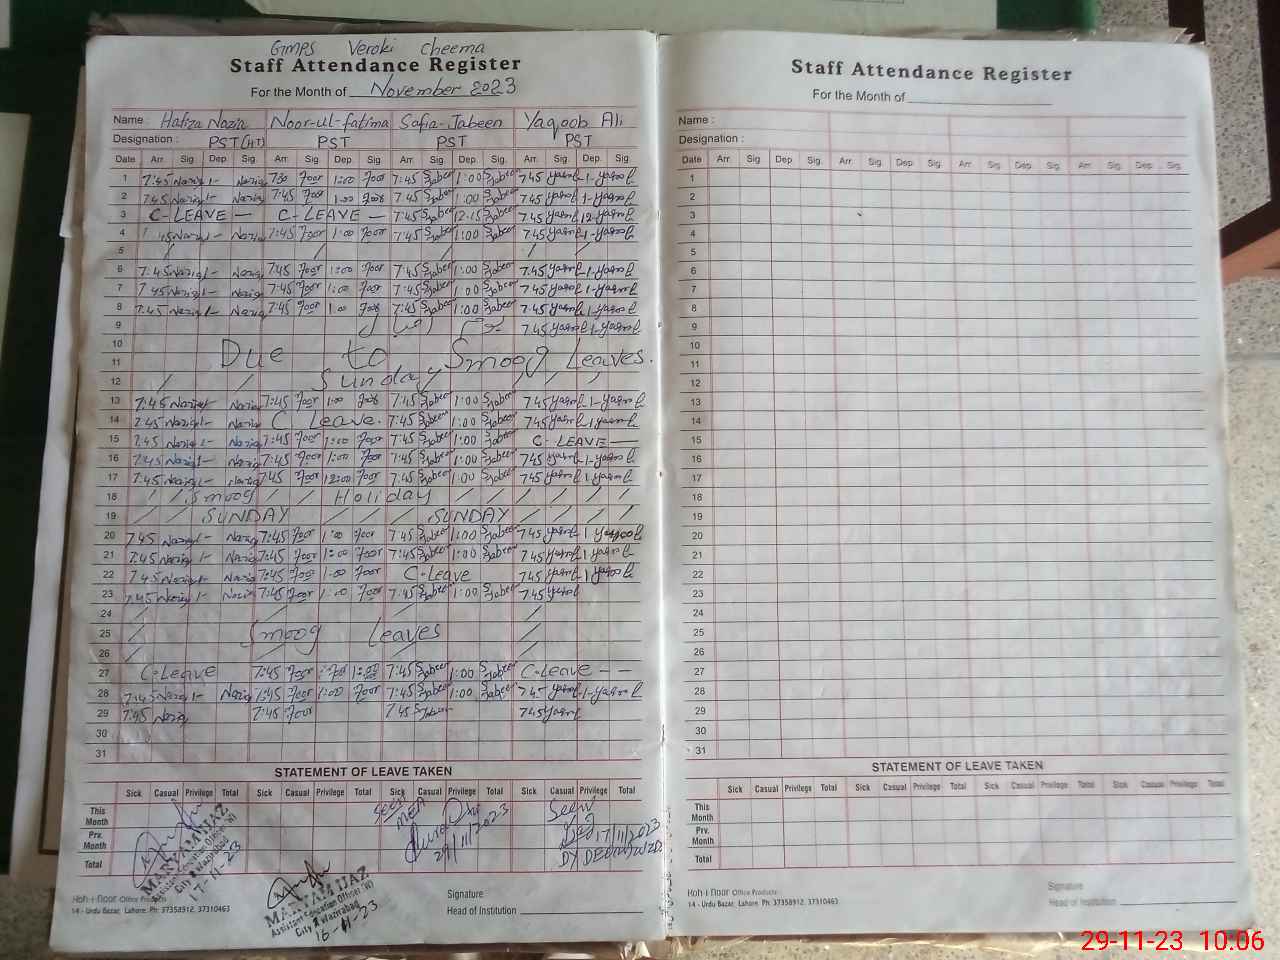 GMPS Veroki Cheema
Staff Attendance Register
For the Month of November 2023
Name : Hafiza Nazia Noor-ul-fatima Safia-Jabeen Yaqoob Ali
Designation : PST(HT) PST PST PST
Date Arr. Sig. Dep. Sig. Arr. Sig. Dep. Sig. Arr. Sig. Dep. Sig. Arr. Sig. Dep. Sig.
1 7:45 Nazia 1- Nazia 7:30 Noor 1:00 Noor 7:45 S Jabeen 1:00 S Jabeen 7.45 Yaqoob 1- Yaqoob
2 7.45 Nazia 1- Nazia 7:45 Noor 1:00 Noor 7.45 S Jabeen 1:00 S Jabeen 7.45 Yaqoob 1- Yaqoob
3 C-LEAVE — C-LEAVE — 7:45 S Jabeen 12:15 S Jabeen 7.45 Yaqoob 12- Yaqoob
4 45 Nazia 1- Nazia 7:45 Noor 1:00 Noor 7:45 S Jabeen 1:00 S Jabeen 7.45 Yaqoob 1- Yaqoob
5
6 7:45 Nazia 1- Nazia 7:45 Noor 1:00 Noor 7:45 S Jabeen 1:00 S Jabeen 7.45 Yaqoob 1- Yaqoob
7 7.45 Nazia 1- Nazia 7:45 Noor 1:00 Noor 7:45 S Jabeen 1:00 S Jabeen 7.45 Yaqoob 1- Yaqoob
8 7:45 Nazia 1- Nazia 7:45 Noor 1:00 Noor 7:45 S Jabeen 1:00 S Jabeen 7.45 Yaqoob 1- Yaqoob
9 7.45 Yaqoob 1- Yaqoob
10
11 Due to Smoog Leaves.
12 Sunday
13 7:45 Nazia Nazia 7:45 Noor 1:00 Noor 7:45 S Jabeen 1:00 S Jabeen 7.45 Yaqoob 1- Yaqoob
14 7.45 Nazia 1- Nazia C Leave. 7:45 S Jabeen 1:00 S Jabeen 7.45 Yaqoob 1 Yaqoob
15 7:45 Nazia 1- Nazia 7:45 Noor 1:00 Noor 7:45 S Jabeen 1:00 S Jabeen C-LEAVE —
16 7:45 Nazia 1- Nazia 7:45 Noor 1:00 Noor 7:45 S Jabeen 1:00 S Jabeen 7.45 Yaqoob 1- Yaqoob
17 7:45 Nazia 1- Nazia 7:45 Noor 12:00 Noor 7:45 S Jabeen 1:00 S Jabeen 7.45 Yaqoob 1 Yaqoob
18 Smoog Holiday
19 SUNDAY SUNDAY
20 7.45 Nazia 1- Nazia 7:45 Noor 1:00 Noor 7:45 S Jabeen 1:00 S Jabeen 7.45 Yaqoob 1 Yaqoob
21 7:45 Nazia 1- Nazia 7:45 Noor 1:00 Noor 7:45 S Jabeen 1:00 S Jabeen 7.45 Yaqoob 1 Yaqoob
22 7.45 Nazia 1- Nazia 7:45 Noor 1:00 Noor C-Leave 7.45 Yaqoob 1 Yaqoob
23 7:45 Nazia 1- Nazia 7:45 Noor 1:00 Noor 7:45 S Jabeen 1:00 S Jabeen 7.45 Yaqoob
24
25 Smoog Leaves
26
27 C-Leave 7:45 Noor 1:00 7:45 S Jabeen 1:00 S Jabeen C-Leave — —
28 7:45 Nazia 1- Nazia 7:45 Noor 1:00 Noor 7:45 S Jabeen 1:00 S Jabeen 7.45 Yaqoob 1- Yaqoob
29 7:45 Nazia 7:45 Noor 7.45 S Jabeen 7.45 Yaqoob
30
31
STATEMENT OF LEAVE TAKEN
Sick Casual Privilege Total Sick Casual Privilege Total Sick Casual Privilege Total Sick Casual Privilege Total
This Month
Prv. Month
Total
Seen
MEA
29/11/2023
Seen
17/11/2023
MARYAM IJAZ
Assistant Education Officer (W)
City 2 Wazirabad
17-11-23
MARYAM IJAZ
Assistant Education Officer (W)
City 2 Wazirabad
16-11-23
Koh-i-Noor Office Products
14 - Urdu Bazar, Lahore. Ph: 37358912, 37310463
Signature
Head of Institution
Staff Attendance Register
For the Month of
Name :
Designation :
Date Arr. Sig. Dep. Sig. Arr. Sig. Dep. Sig. Arr. Sig. Dep. Sig. Arr. Sig. Dep. Sig.
1
2
3
4
5
6
7
8
9
10
11
12
13
14
15
16
17
18
19
20
21
22
23
24
25
26
27
28
29
30
31
STATEMENT OF LEAVE TAKEN
Sick Casual Privilege Total Sick Casual Privilege Total Sick Casual Privilege Total Sick Casual Privilege Total
This Month
Prv. Month
Total
Koh-i-Noor Office Products
14 - Urdu Bazar, Lahore. Ph: 37358912, 37310463
Signature
Head of Institution
29-11-23 10:06